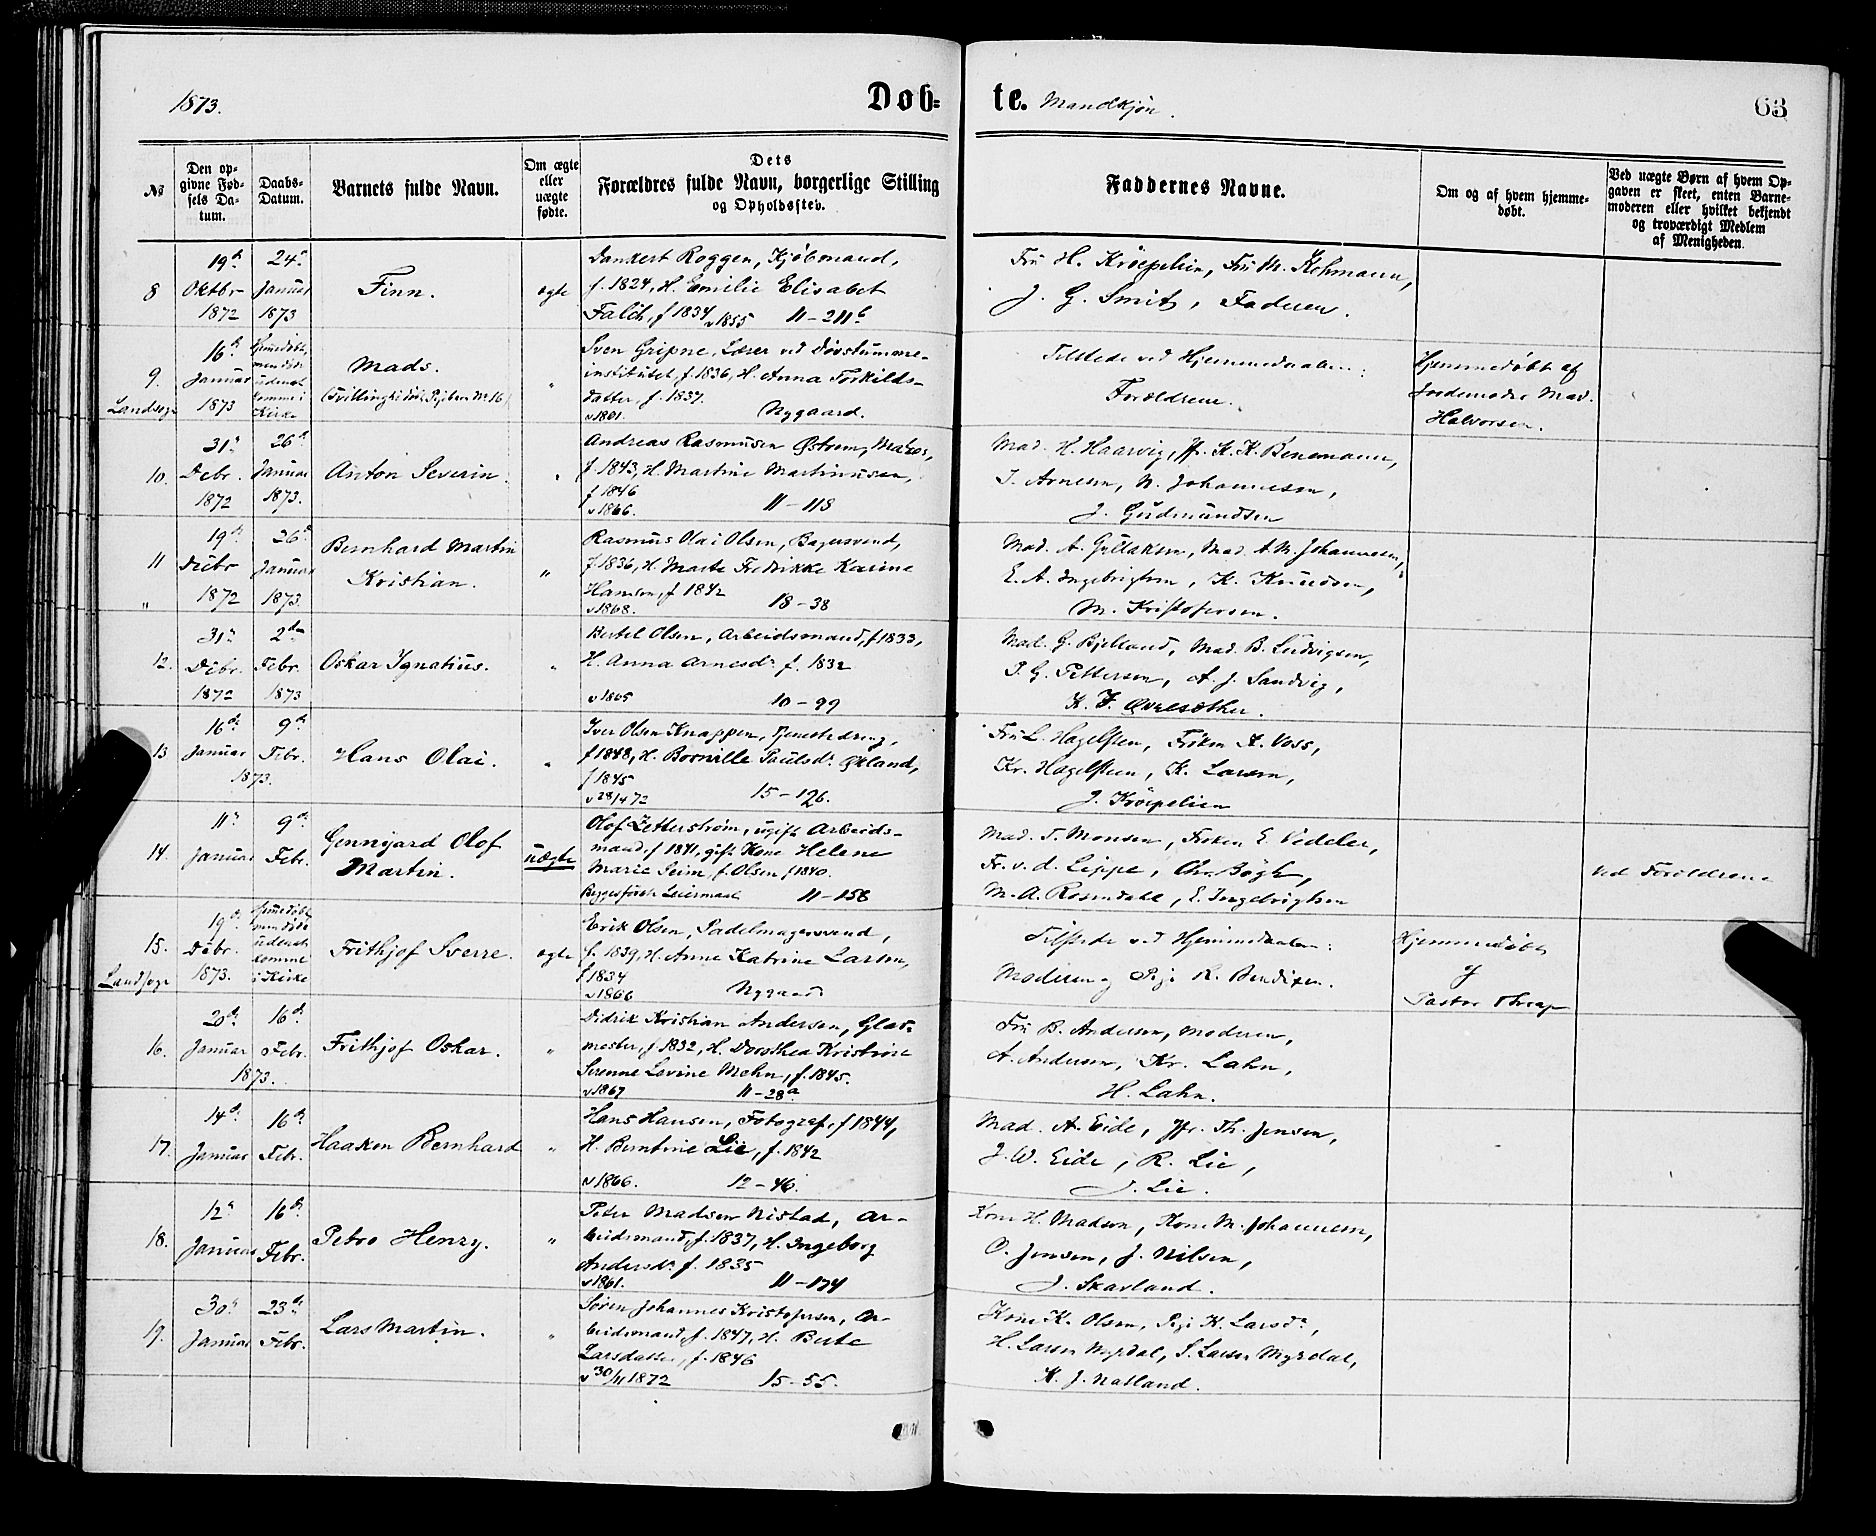 1873.
Døb=
te. Mandkjøn.
63
№
Den op-
givne Fød-
sels Da-
tum.
Daabs-
Datum.
Barnets fulde Navn.
Om ægte
eller
uægte
fødte.
Dets
Forældres fulde Navn, borgerlige Stilling
og Opholdssted.
Faddernes Navne.
Om og af hvem hjemme-
døbt.
Ved uægte Børn af hvem Op-
gaven er skeet, enten Barne-
moderen eller hvilket bekjendt
og troværdigt Medlem
af Menigheden.
8
19de Oktbr 1872
24de Januar 1873
Finn.
ægte
Dankert Roggen, Kjøbmand,
f. 1824, H. Emilie Elisabet
Falch, f 1834 v 1855 11-211b
Fru H. Krøepelien, Fru M. Kohmann,
J. G. Smit, Faderen.
9.
Landsogn
16de Januar 1873
Hjemmedøbt, men døde udenat komme i Kirke
Mads.
"
Sven Gripne, Lærer ved Døvstumme-
institutet, f. 1836, H. Anna Torkilds-
datter, f. 1837.
v 1861. Nygaard.
Tilstede ved Hjemmedaaben:
Forældrene.
Hjemmedøbt af
Jordemoder Mad.
Halvorsen.
10.
31te Debr. 1872
26de Januar 1873.
Anton Severin.
"
Andreas Rasmusen Østrem,
f 1843, H. Martine Martinusen,
f 1846
v 1866. 11-118
Mad. H. Haarvig, Jfr. K. K. Benemann,
I. Arnesen, N. Johannesen,
J. Gudmundsen
11
"
19de Debr 1872
26de Januar 1873.
Bernhard Martin
Kristian.
"
Rasmus Olai Olsen, Bagersvend,
f 1836, H. Marte Fredrikke Karine
Hansen, f 1842
v 1868. 18-38
Mad. A. Gullaksen, Mad. A. M. Johannesen,
E. A. Ingebrigtsen, K. Knudsen,
M. Kristofersen.
12.
31te Debr. 1872
2den Febr. 1873
Oskar Ignatius.
"
Bertel Olsen, Arbeidsmand, f 1833,
H. Anna Arnesdr. f. 1832
v 1865 10-99
Mad. G. Bjelland, Mad. B. Ludvigsen,
P. G. Pettersen, A. J. Sandvig,
K. F. Øvresæther.
13
16de Januar
9de Febr.
1873.
Hans Olai.
"
Iver Olsen Knappen, Tjenestedreng,
f 1848, H. Bornille Paulsdr. Økland,
f 1845
v 28/4 72 15-126.
Fru L. Hagelsten, Frøken A. Voss,
Kr. Hagelsteen, K. Larsen,
J. Krøepelien
14.
11te Januar
9de Febr.
Gennijard Olof
Martin.
uægte
Olof Zetterstrøm, ugift Arbeids-
mand, f 1841, gift Kone Helene
Marie Seim, f. Olsen f 1840.
Begges første Leiermaal 11-158
Mad. T. Monsen, Frøken E. Vedeler,
Fr. v. d. Lippe, Chr. Bøgh,
M. A. Rosendahl, E. Ingebrigtsen
ved Forældrene
15.
Landsogn
19de Debr. 1873.
Hjemmedøbt men døde udenat komme i Kirke
Frithjof Sverre.
ægte
Erik Olsen, Sadelmagersvend,
f. 1839, H. Anne Katrine Larsen,
f 1834
v 1866 Nygaard
Tilstede ved Hjemmedaaben:
Moderen og Pige K. Bendixen.
Hjemmedøbt
af
Pastor Thrap
16.
20de Januar
16de Febr.
1873.
Frithjof Oskar.
"
Didrik Kristian Andersen, Glar-
mester, f 1832, H. Dorothea Kristine
Serenne Lovine Mehn, f. 1845.
v 1867 11-28a
Fru B. Andersen, Moderen,
A. Andersen, Kr. Lahn,
H. Lahn.
17.
14de Januar
16de Febr.
Haakon Bernhard
"
Hans Hansen, Fotograf, f 1844,
H. Berntine Lie, f. 1842
v 1866. 12-46.
Mad. A. Eide, Jfr. Th. Jensen,
J. W. Eide, R. Lie,
J. Lie.
18.
12te Januar
16de Febr.
Peter Henry.
"
Peter Madsen Nistad, Ar-
beidsmand, f. 1837, H. Ingeborg
Andersdr. f. 1835
v 1861. 11-174
Kone H. Madsen, Kone M. Johannesen,
O. Jensen, J. Nilsen,
J. Skarland.
19.
30te Januar
23de Febr.
Lars Martin.
"
Søren Johannes Kristofersen, Ar-
beidsmand, f. 1847, H. Berte
Larsdatter, f. 1846
v 30/11 1872 15-55.
Kone K. Olsen, Pige K. Larsdr.,
H. Larsen Myrdal, S. Larsen Myrdal,
K. J. Natland.